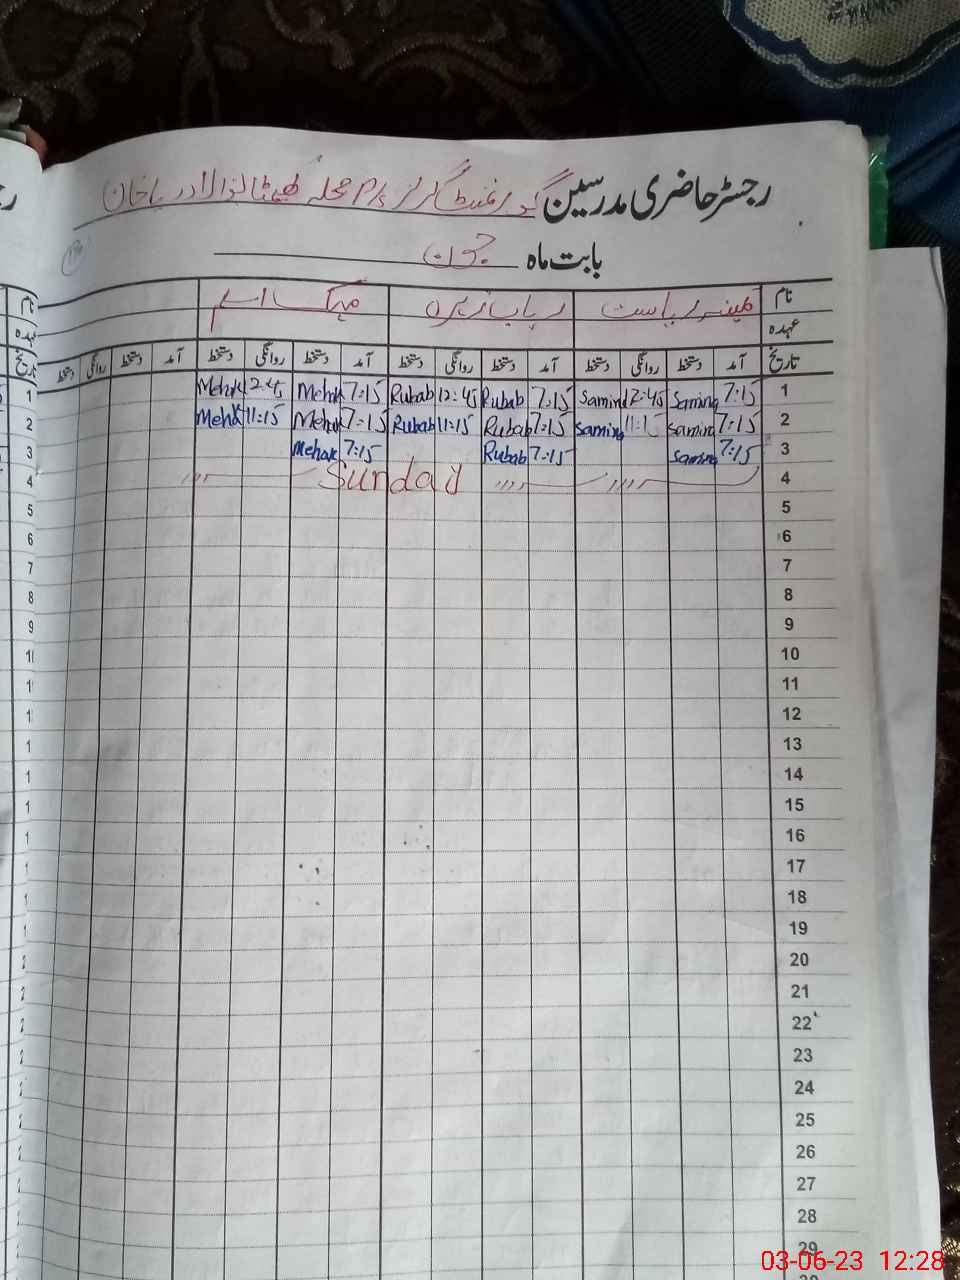 رجسٹر حاضری مدرسین گورنمنٹ گرلز P/S محلہ
بابت ماہ جون
نام ثمینہ ریاست رباب زہرہ مہک اسلم
عہدہ
تاریخ آمد دستخط روانگی دستخط آمد دستخط روانگی دستخط آمد دستخط روانگی دستخط آمد دستخط روانگی دستخط
1 7:15 Samina 12:45 Samina 7:15 Rubab 12:45 Rubab 7:15 Mehak 12:45 Mehak
2 7:15 Samina 11:15 Samina 7:15 Rubab 11:15 Rubab 7:15 Mehak 11:15 Mehak
3 7:15 Samina 7:15 Rubab 7:15 Mehak
4 Sunday
5
6
7
8
9
10
11
12
13
14
15
16
17
18
19
20
21
22
23
24
25
26
27
28
29
03-06-23 12:28